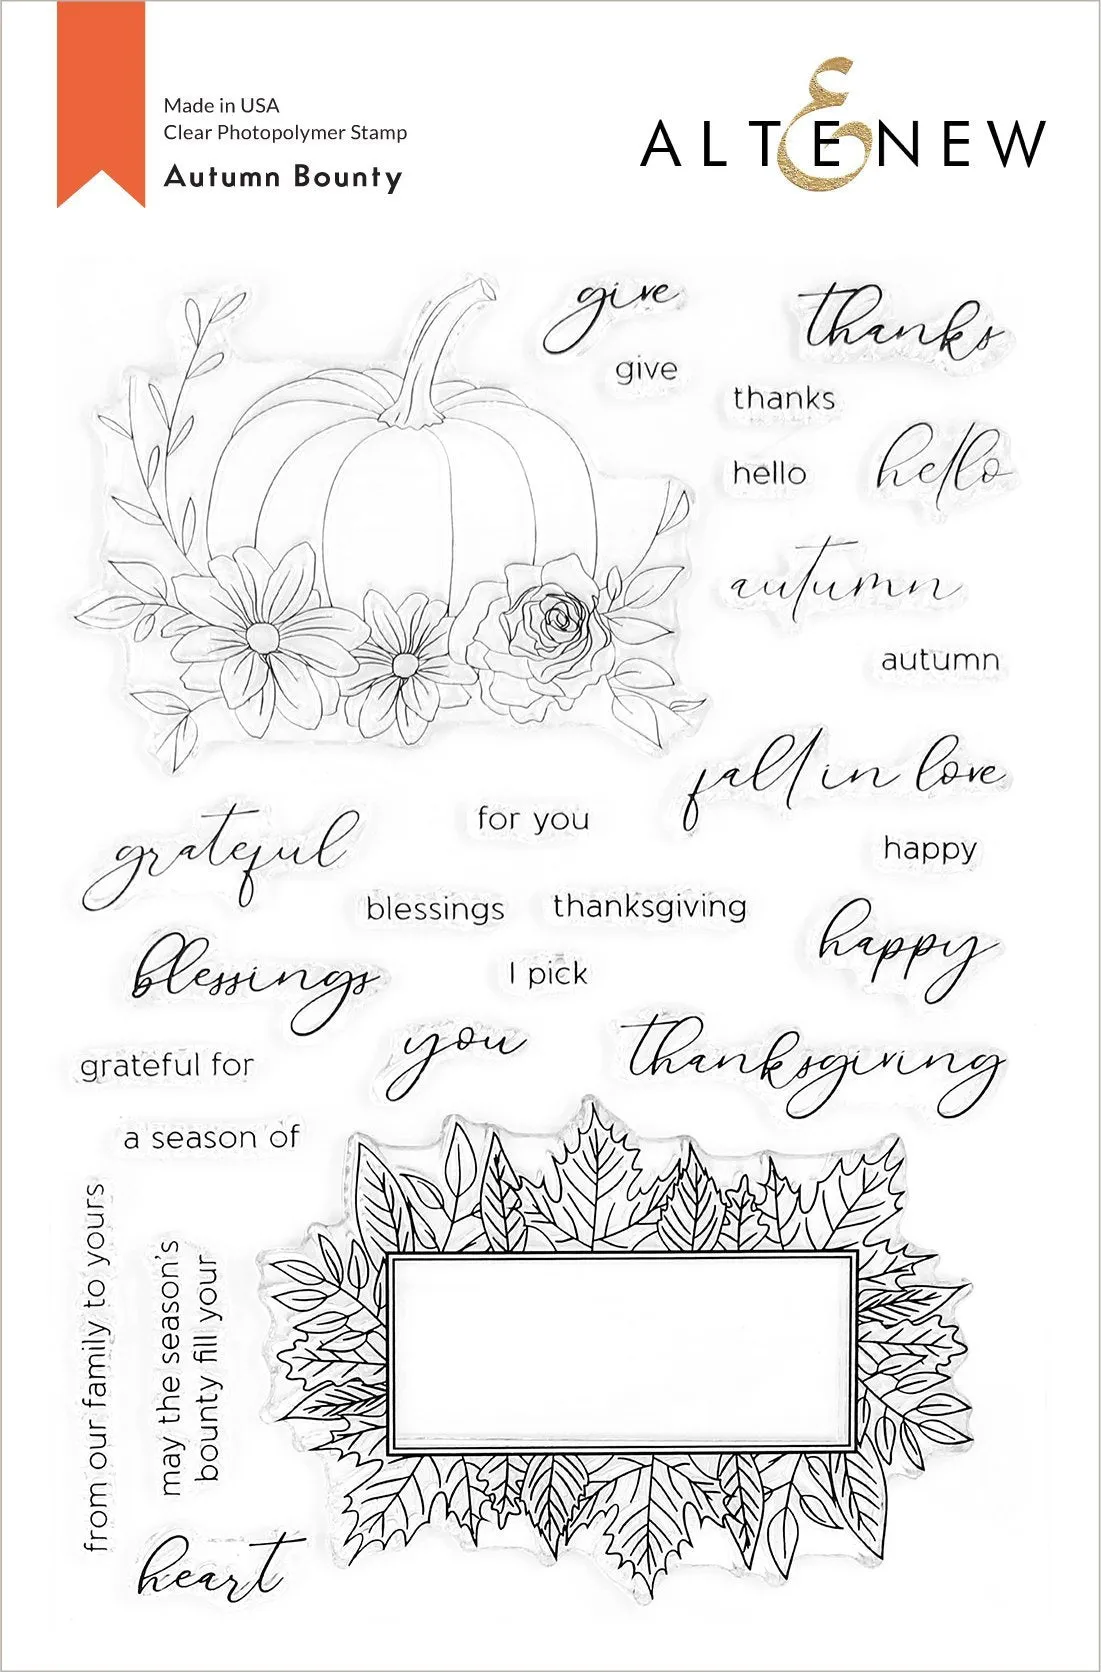 Made in USA
Clear Photopolymer Stamp
Autumn Bounty
ALTENEW
give
thanks
give
thanks
hello
hello
autumn
autumn
fall in love
for you
grateful
happy
blessings
thanksgiving
happy
blessings
I pick
you
thanksgiving
grateful for
a season of
from our family to yours
may the season's
bounty fill your
heart